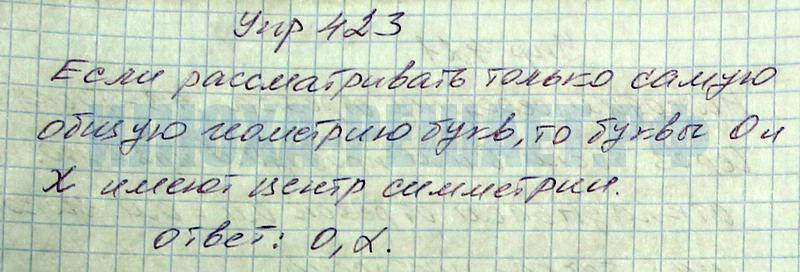 Упр 423
Если рассматривать только самую
общую геометрию букв, то буквы О и
Х имеют центр симметрии.
ответ: О, Х.